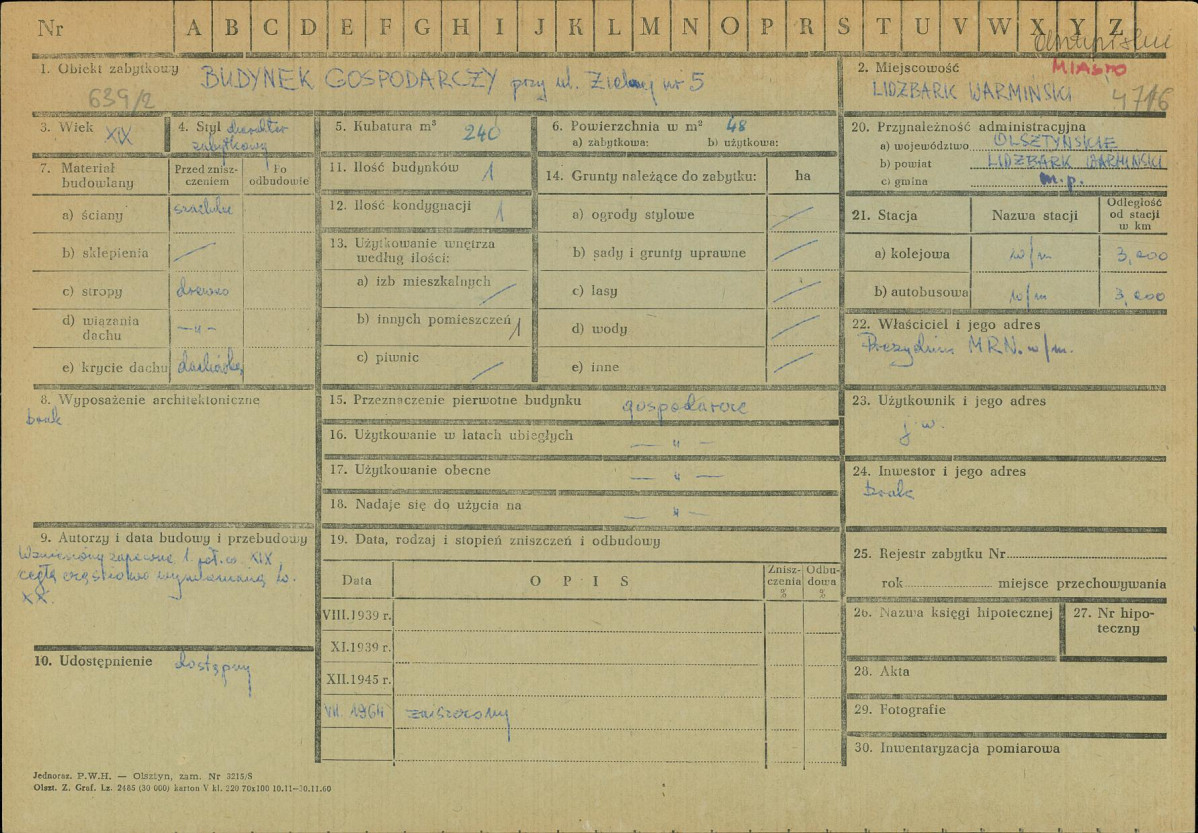 Nr A B C D E F G H I J K L M N O P R S T U V W X Y Z
olsztyńskie
1. Obiekt zabytkowy BUDYNEK GOSPODARCZY przy ul. Zielonej nr 5
639/2
2. Miejscowość MIASTO
LIDZBARK WARMIŃSKI 4716
3. Wiek XIX
4. Styl charakter
zabytkowy
5. Kubatura m³ 240
6. Powierzchnia w m² 48
a) zabytkowa: b) użytkowa:
20. Przynależność administracyjna
a) województwo OLSZTYŃSKIE
b) powiat LIDZBARK WARMIŃSKI
c) gmina m.p.
7. Materiał
budowlany
Przed znisz-
czeniem
Po
odbudowie
a) ściany szachulec
b) sklepienia —
c) stropy drewno
d) wiązania
dachu —„—
e) krycie dachu dachówka
11. Ilość budynków 1
12. Ilość kondygnacji 1
13. Użytkowanie wnętrza
według ilości:
a) izb mieszkalnych —
b) innych pomieszczeń 1
c) piwnic —
14. Grunty należące do zabytku: ha
a) ogrody stylowe —
b) sady i grunty uprawne —
c) lasy —
d) wody —
e) inne —
21. Stacja Nazwa stacji Odległość
od stacji
w km
a) kolejowa w/m 3,000
b) autobusowa w/m 3,000
22. Właściciel i jego adres
Prezydium M.R.N. w/m.
8. Wyposażenie architektoniczne
brak
15. Przeznaczenie pierwotne budynku gospodarcze
16. Użytkowanie w latach ubiegłych —„—
17. Użytkowanie obecne —„—
18. Nadaje się do użycia na —„—
23. Użytkownik i jego adres
j.w.
24. Inwestor i jego adres
brak
9. Autorzy i data budowy i przebudowy
Wzniesiony zapewne 1 poł. w. XIX,
cegłą częściowo wymieniony w.
XX.
10. Udostępnienie dostępny
19. Data, rodzaj i stopień zniszczeń i odbudowy
Data OPIS Znisz-
czenia
%
Odbu-
dowa
%
VIII.1939 r.
XI.1939 r.
XII.1945 r.
VII. 1964 zniszczony
25. Rejestr zabytku Nr
rok miejsce przechowywania
26. Nazwa księgi hipotecznej
27. Nr hipo-
teczny
28. Akta
29. Fotografie
30. Inwentaryzacja pomiarowa
Jednoraz. P.W.H. — Olsztyn, zam. Nr 3215/S
Olszt. Z. Graf. Lz. 2485 (30 000) karton V kl. 220 70x100 10.11—30.11.60